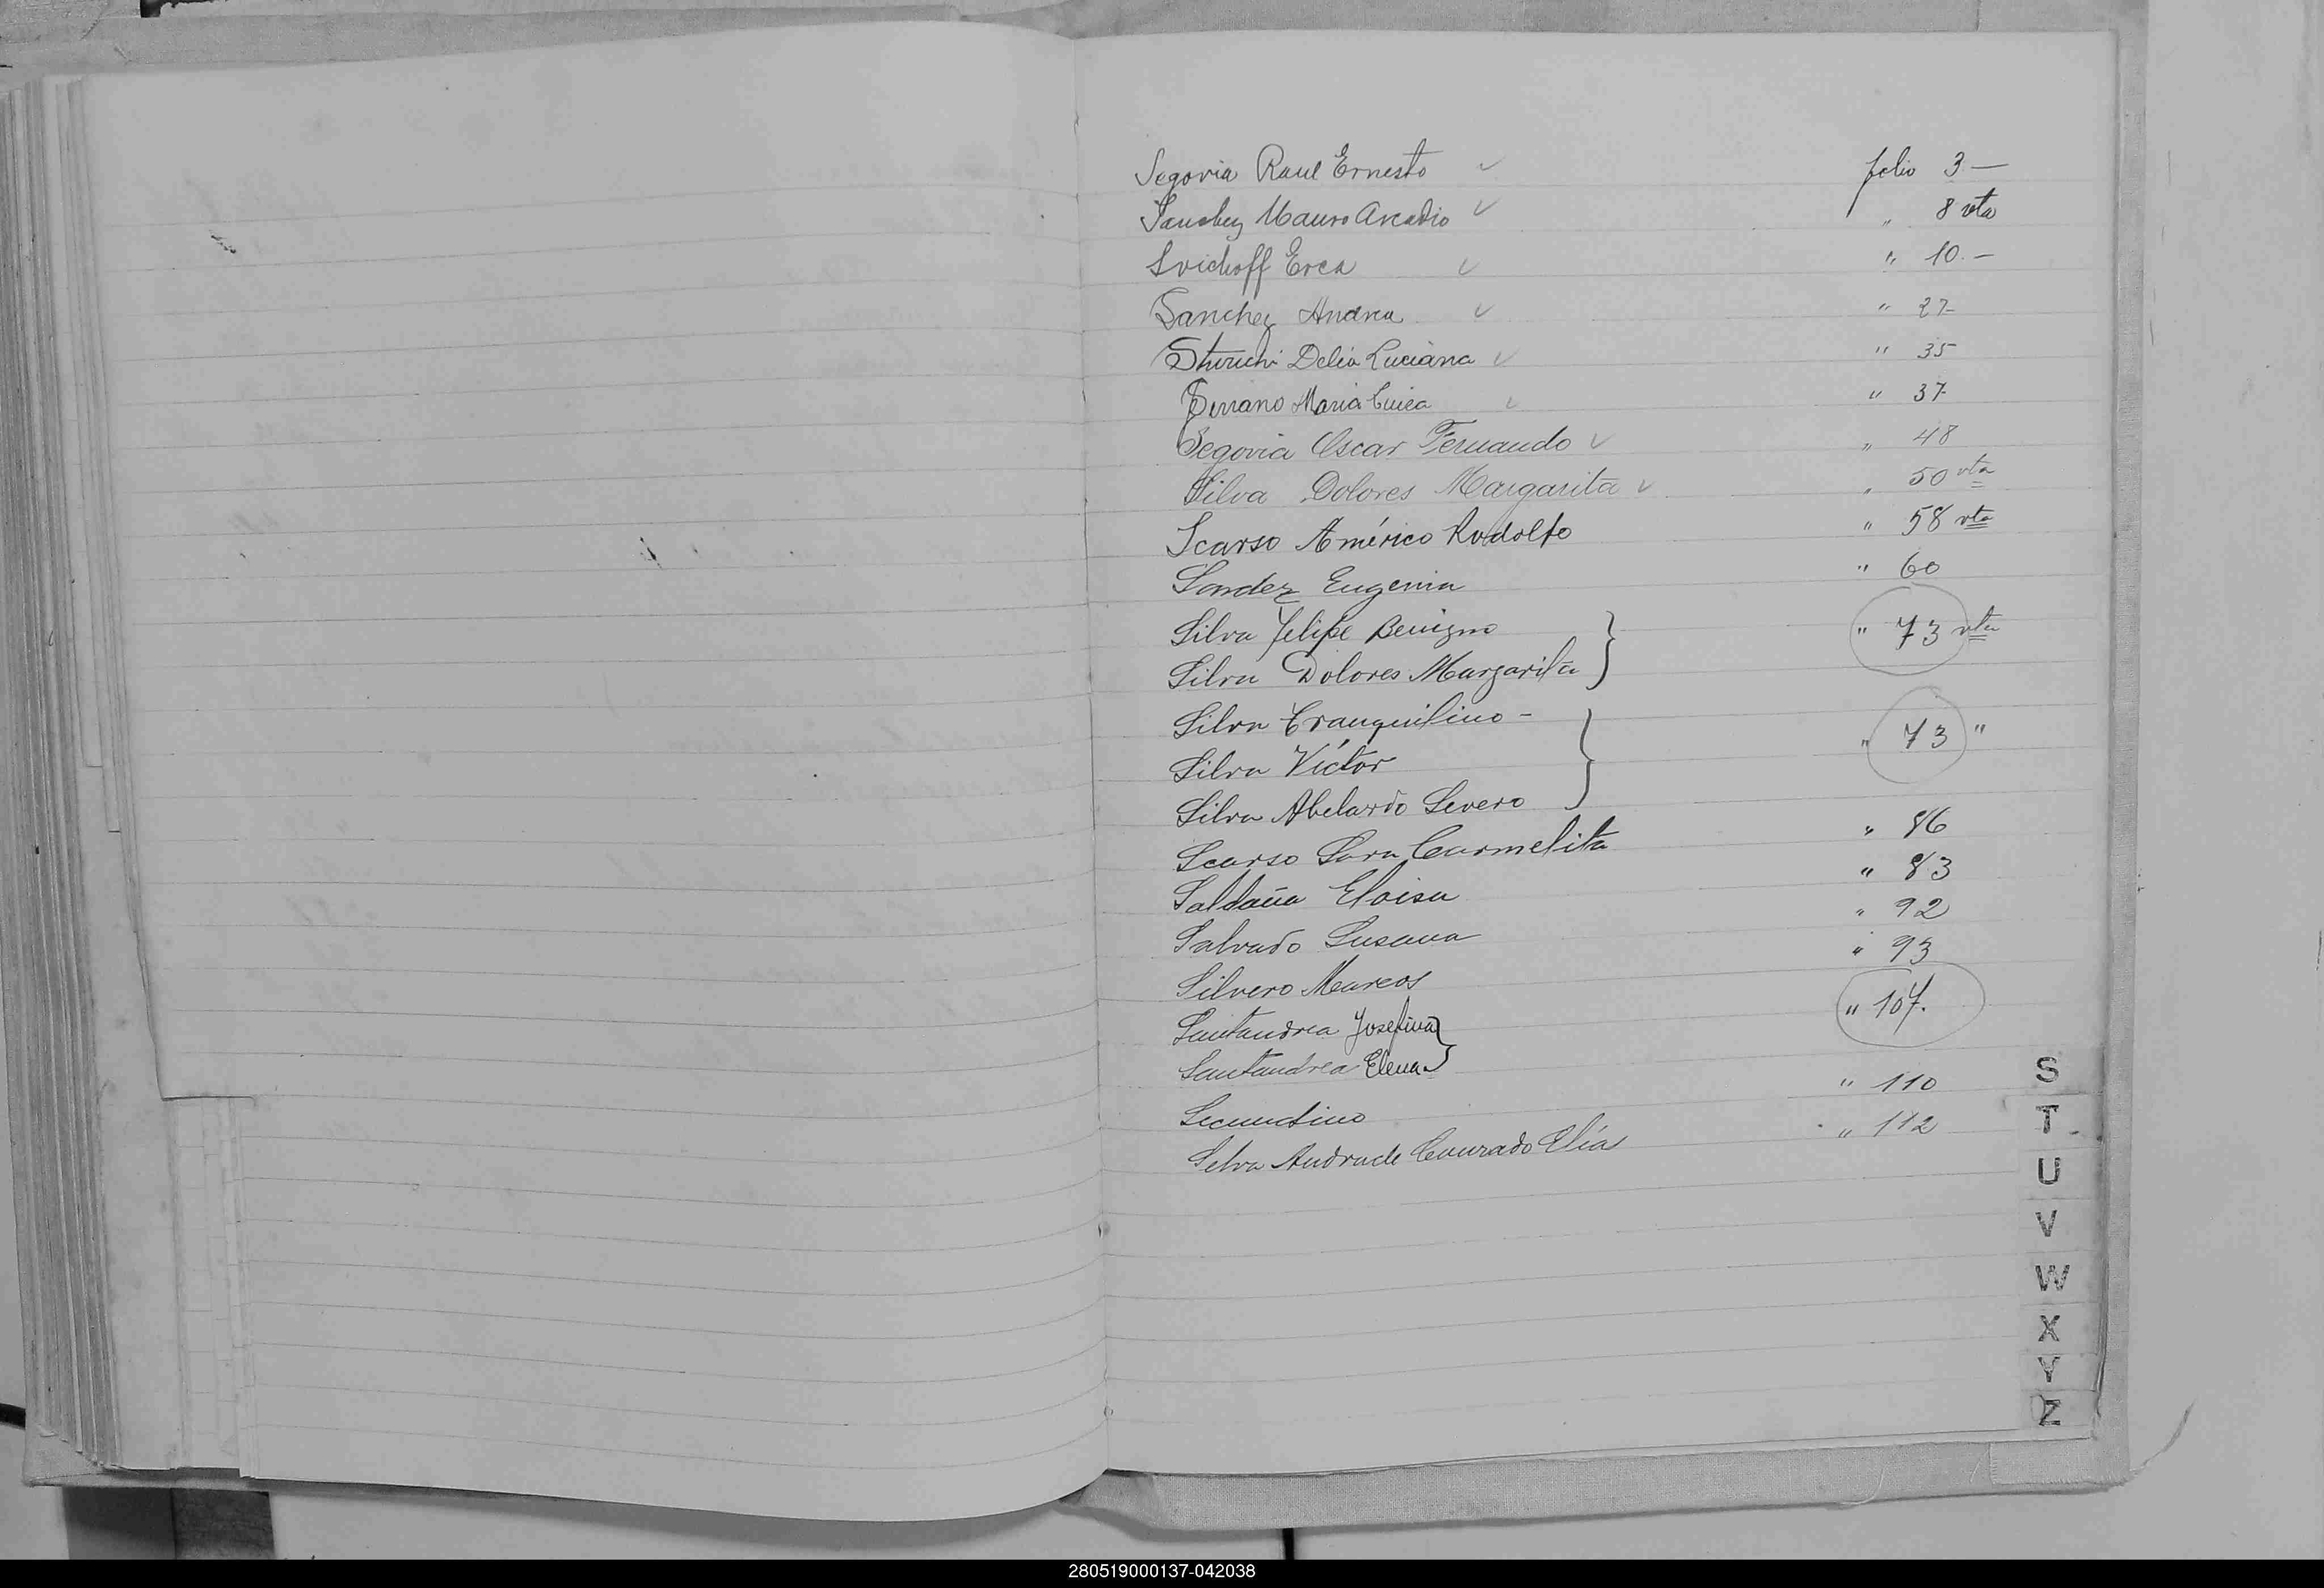 Segovia Raul Ernesto ✓ folio 3 —
Sanchez Mauro Arcadio ✓ " 8 vta
Svichoff Erea ✓ " 10. —
Sanchez Andrea ✓ " 27-
Delia Luciana ✓ " 35
Serrano Maria ✓ " 37
Segovia Oscar Fernando ✓ " 48
Silva Dolores Margarita ✓ " 50 vta
Scarso Américo Rodolfo " 58 vta
Sandez Eugenia " 60
Silva Felipe Benigno } " 73 vta
Silva Dolores Margarita
Silva Tranquilino - } " 73 "
Silva Víctor
Silva Abelardo Severo
Scarso Sara Carmelita " 86
Saldaña Eloisa " 83
Salvado Susana " 92
Silvero Marcos " 93
Santandrea Josefina } " 107.
Santandrea Elena
Secundino " 110
Selva Andrade Conrado Elías " 112
S
T
U
V
W
X
Y
Z
280519000137-042038